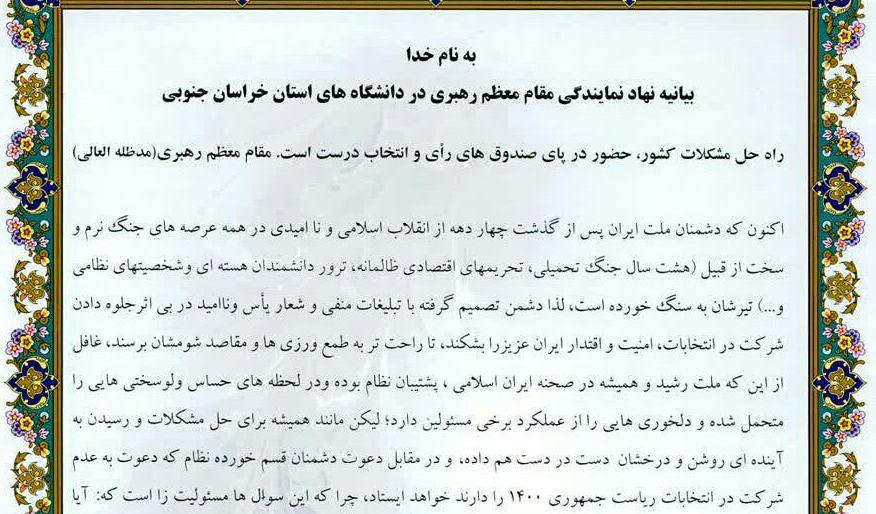 به نام خدا
بیانیه نهاد نمایندگی مقام معظم رهبری در دانشگاه های استان خراسان جنوبی
راه حل مشکلات کشور، حضور در پای صندوق های رأی و انتخاب درست است. مقام معظم رهبری(مدظله العالی)
اکنون که دشمنان ملت ایران پس از گذشت چهار دهه از انقلاب اسلامی و نا امیدی در همه عرصه های جنگ نرم و
سخت از قبیل (هشت سال جنگ تحمیلی، تحریمهای اقتصادی ظالمانه، ترور دانشمندان هسته ای وشخصیتهای نظامی
و...) تیرشان به سنگ خورده است، لذا دشمن تصمیم گرفته با تبلیغات منفی و شعار یأس وناامید در بی اثرجلوه دادن
شرکت در انتخابات، امنیت و اقتدار ایران عزیزرا بشکند، تا راحت تر به طمع ورزی ها و مقاصد شومشان برسند، غافل
از این که ملت رشید و همیشه در صحنه ایران اسلامی ، پشتیبان نظام بوده ودر لحظه های حساس ولوسختی هایی را
متحمل شده و دلخوری هایی را از عملکرد برخی مسئولین دارد؛ لیکن مانند همیشه برای حل مشکلات و رسیدن به
آینده ای روشن و درخشان دست در دست هم داده، و در مقابل دعوت دشمنان قسم خورده نظام که دعوت به عدم
شرکت در انتخابات ریاست جمهوری ۱۴۰۰ را دارند خواهد ایستاد، چرا که این سوال ها مسئولیت زا است که: آیا